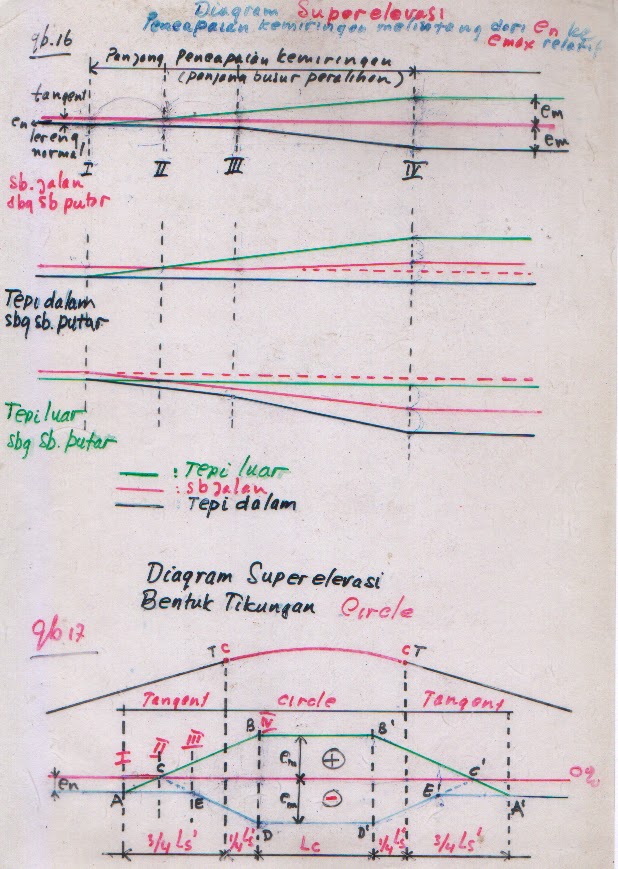 Diagram Superelevasi
Pencapaian kemiringan melintang dari en ke
emax relatif
gb.16
Panjang Pencapaian kemiringan
(panjang busur peralihan)
tangent
en
lereng
normal
em
em
I II III IV
sb. jalan
sbg sb putar
Tepi dalam
sbg sb. putar
Tepi luar
sbg sb. putar
: Tepi luar
: sb jalan
: Tepi dalam
Diagram Superelevasi
Bentuk Tikungan Circle
gb.17
TC CT
Tangent circle Tangent
I II III B IV B'
C em + C' 0%
en
A E em - E' A'
D D'
3/4 Ls' 1/4 Ls' Lc 1/4 Ls' 3/4 Ls'